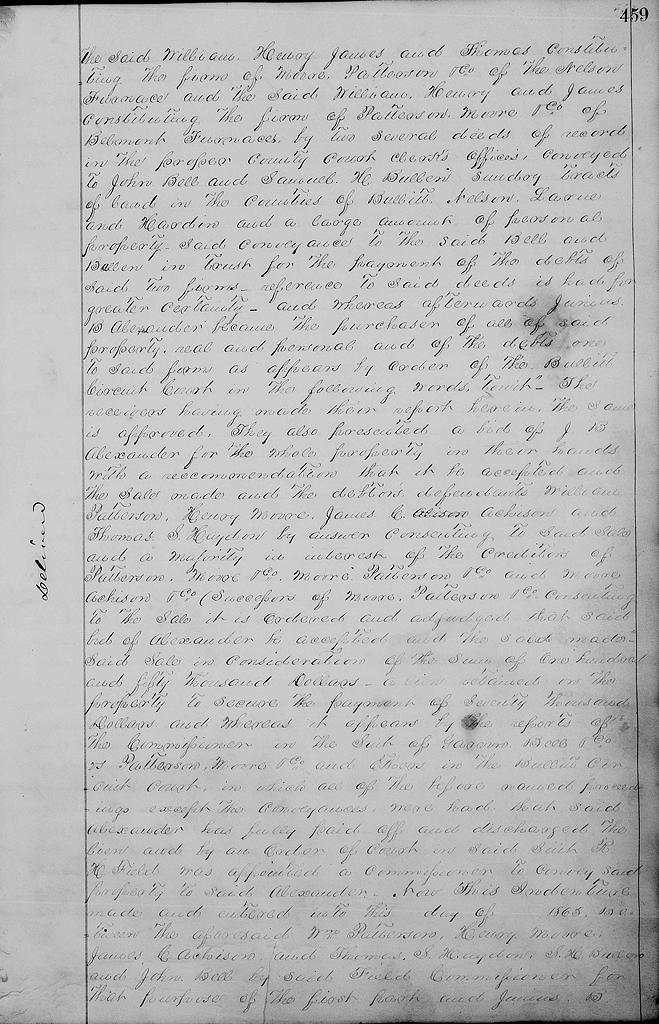 459
the Said William, Henry James and Thomas Constitu-
ting the firm of Moore, Patterson & Co of the Nelson
Furnace and the Said William, Henry and James
Constituting the firm of Patterson, Moore & Co of
Belmont Furnaces, by two several deeds of record
in the proper County Court clerk's offices, conveyed
to John Bell and Samuel. H. Bullen Sundry tracts
of land in the Counties of Bullitt, Nelson, Larue
and Hardin and a large amount of personal
property - Said Conveyance to the Said Bell and
Bullen in trust for the payment of the debts of
Said two firms - reference to Said deeds is had for
greater certainty - and whereas afterwards Junius.
B Alexander became the purchaser of all of said
property, real and personal and of the debts
to Said firms as appears by order of the Bullitt
Circuit Court in the following words, towit" - The
receivers having made their report herein, the Same
is approved. They also presented a bid of J B
Alexander for the whole property in their hands
with a recommendation that it be accepted and
the Sale made and the debtors, defendants William
Patterson, Henry Moore, James C. Alison Achison and
Thomas S. Haydon by answer Consenting to Said Sale
and a majority in interest of the Creditors of
Patterson, Moore & Co. Moore Patterson & Co and Moore
Achison & Co (Successors of Moore, Patterson & Co. Consenting
to the Sale it is ordered and adjudged that said
bid of Alexander be accepted and the Sale made -
Said Sale in Consideration of the Sum of One hundred
and fifty thousand Dollars - a lien retained on the
property to secure the payment of Seventy thousand
Dollars and whereas it appears by the reports of
the Commissioner in the Suit of Garvin, Bell & Co
vs Patterson, Moore & Co and others in the Bullitt Cir
cuit Court, in which all of the before named proceed
-ings except the Conveyances were had, that said
Alexander has fully paid off and discharged the
lien and by an Order of Court in said Suit R.
H Field was appointed a Commissioner to Convey Said
property to Said Alexander - Now This Indenture
made and entered into this day of 1865, be-
tween the aforesaid Wm Patterson, Henry Moore,
James, C Achison, and Thomas, S. Haydon S. H. Bullen
and John Bell by Said Field Commissioner for
that purpose of the first part and Junius. B
Delivered